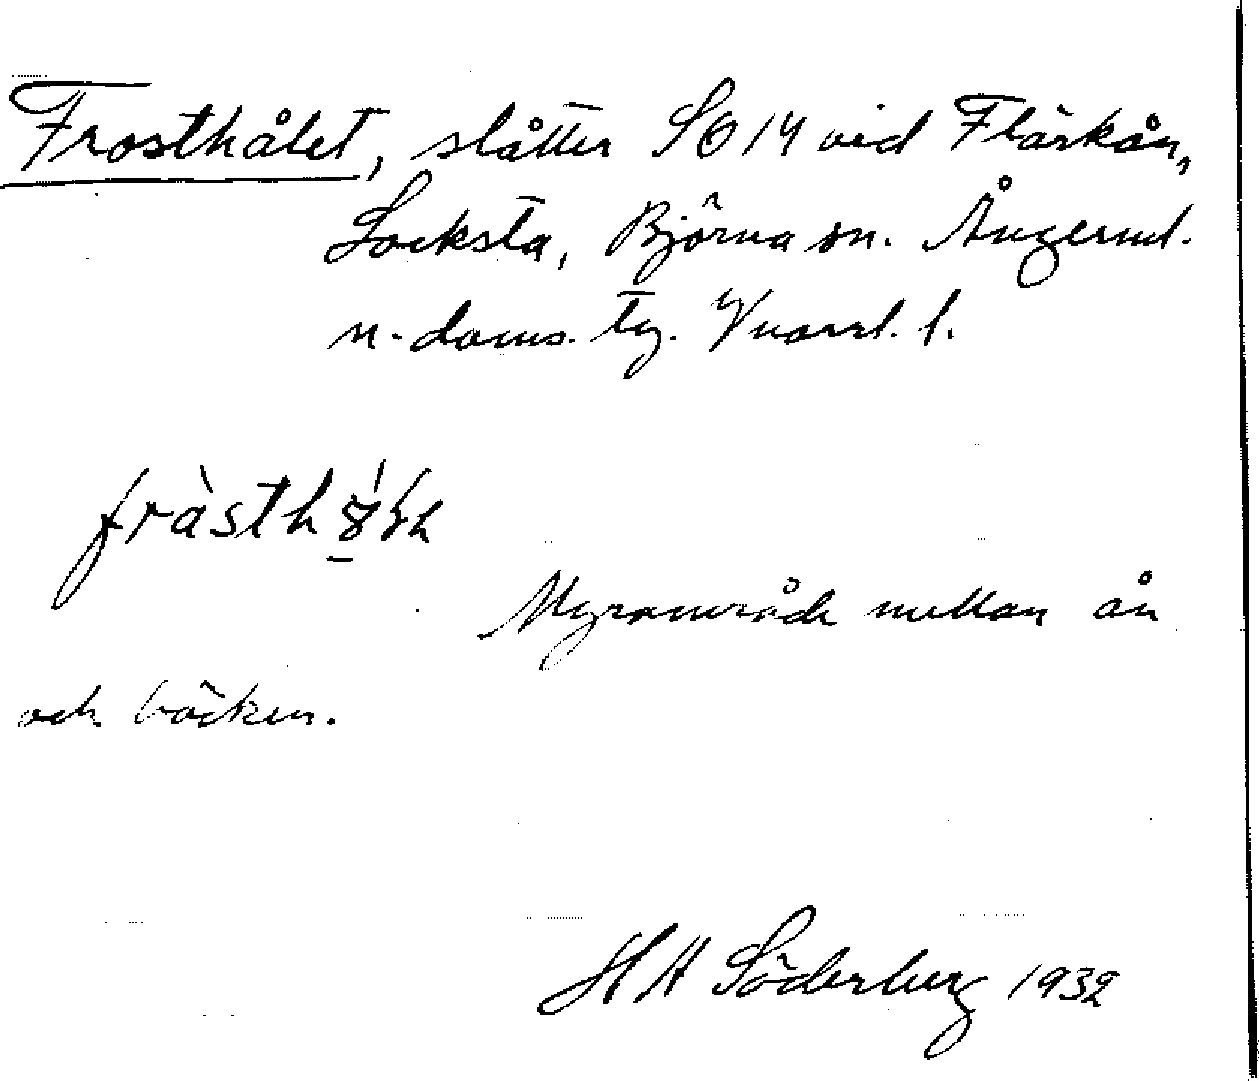 Frosthålet, slåtter SO 14 vid Flärkån,
Locksta, Björna sn. Ångerml.
n. doms. tg. Vnorrl. l.
Myrområde mellan ån
och bäcken.
H H Söderberg 1932